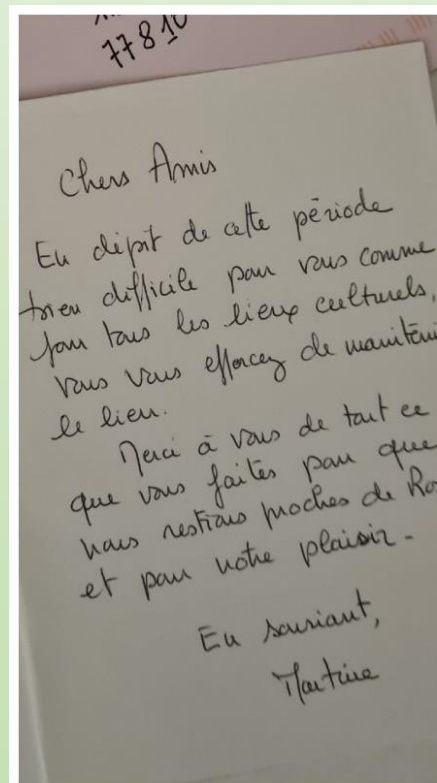 77810
Chers Amis
En dépit de cette période
bien difficile pour vous comme
pour tous les lieux culturels,
vous vous efforcez de mainteni
le lien.
Merci à vous de tout ce
que vous faites pour que
nous restions proches de Ro
et pour notre plaisir.
En souriant,
Martine